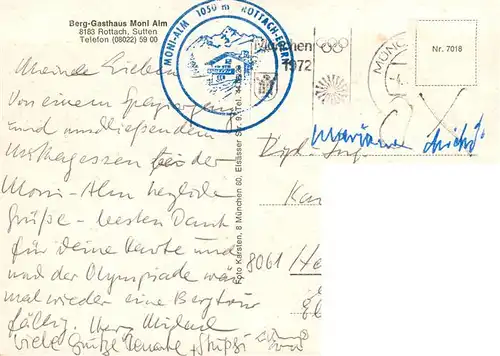 Berg-Gasthaus Moni Alm
8183 Rottach, Sutten
Telefon (08022) 59 00
MONI-ALM 1050 m ROTTACH-EGERN
München
1972
MÜNC
Nr. 7018
Meine Lieben
Von einem Spaziergang
und anschließendem
Mittagessen bei der
Moni-Alm herzliche
Grüße - besten Dank
für deine Karte und
und der Olympiade wär
mal wieder eine Bergtour
fällig. Herz Michael
viele Grüße Renate + Stupsi
Foto Karsten, 8 München 60, Elsässer Str. 9, Tel.
Marianne
Dipl. Ing.
Kar
8061 He